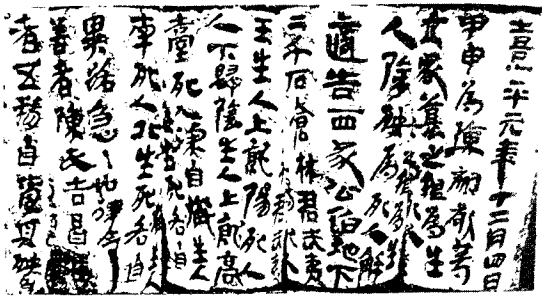 熹平元年十二月四日
甲申為陳叔敬等
立冢墓之根為生
人除殃為死人解
適告西冢公伯地下
二千石倉林君武夷
王生人上就陽死人
下歸陰生人上就高
臺死人深自藏生人
南死人北生死各自
異路急急如律令
善者陳氏吉昌
者五精自受其殃